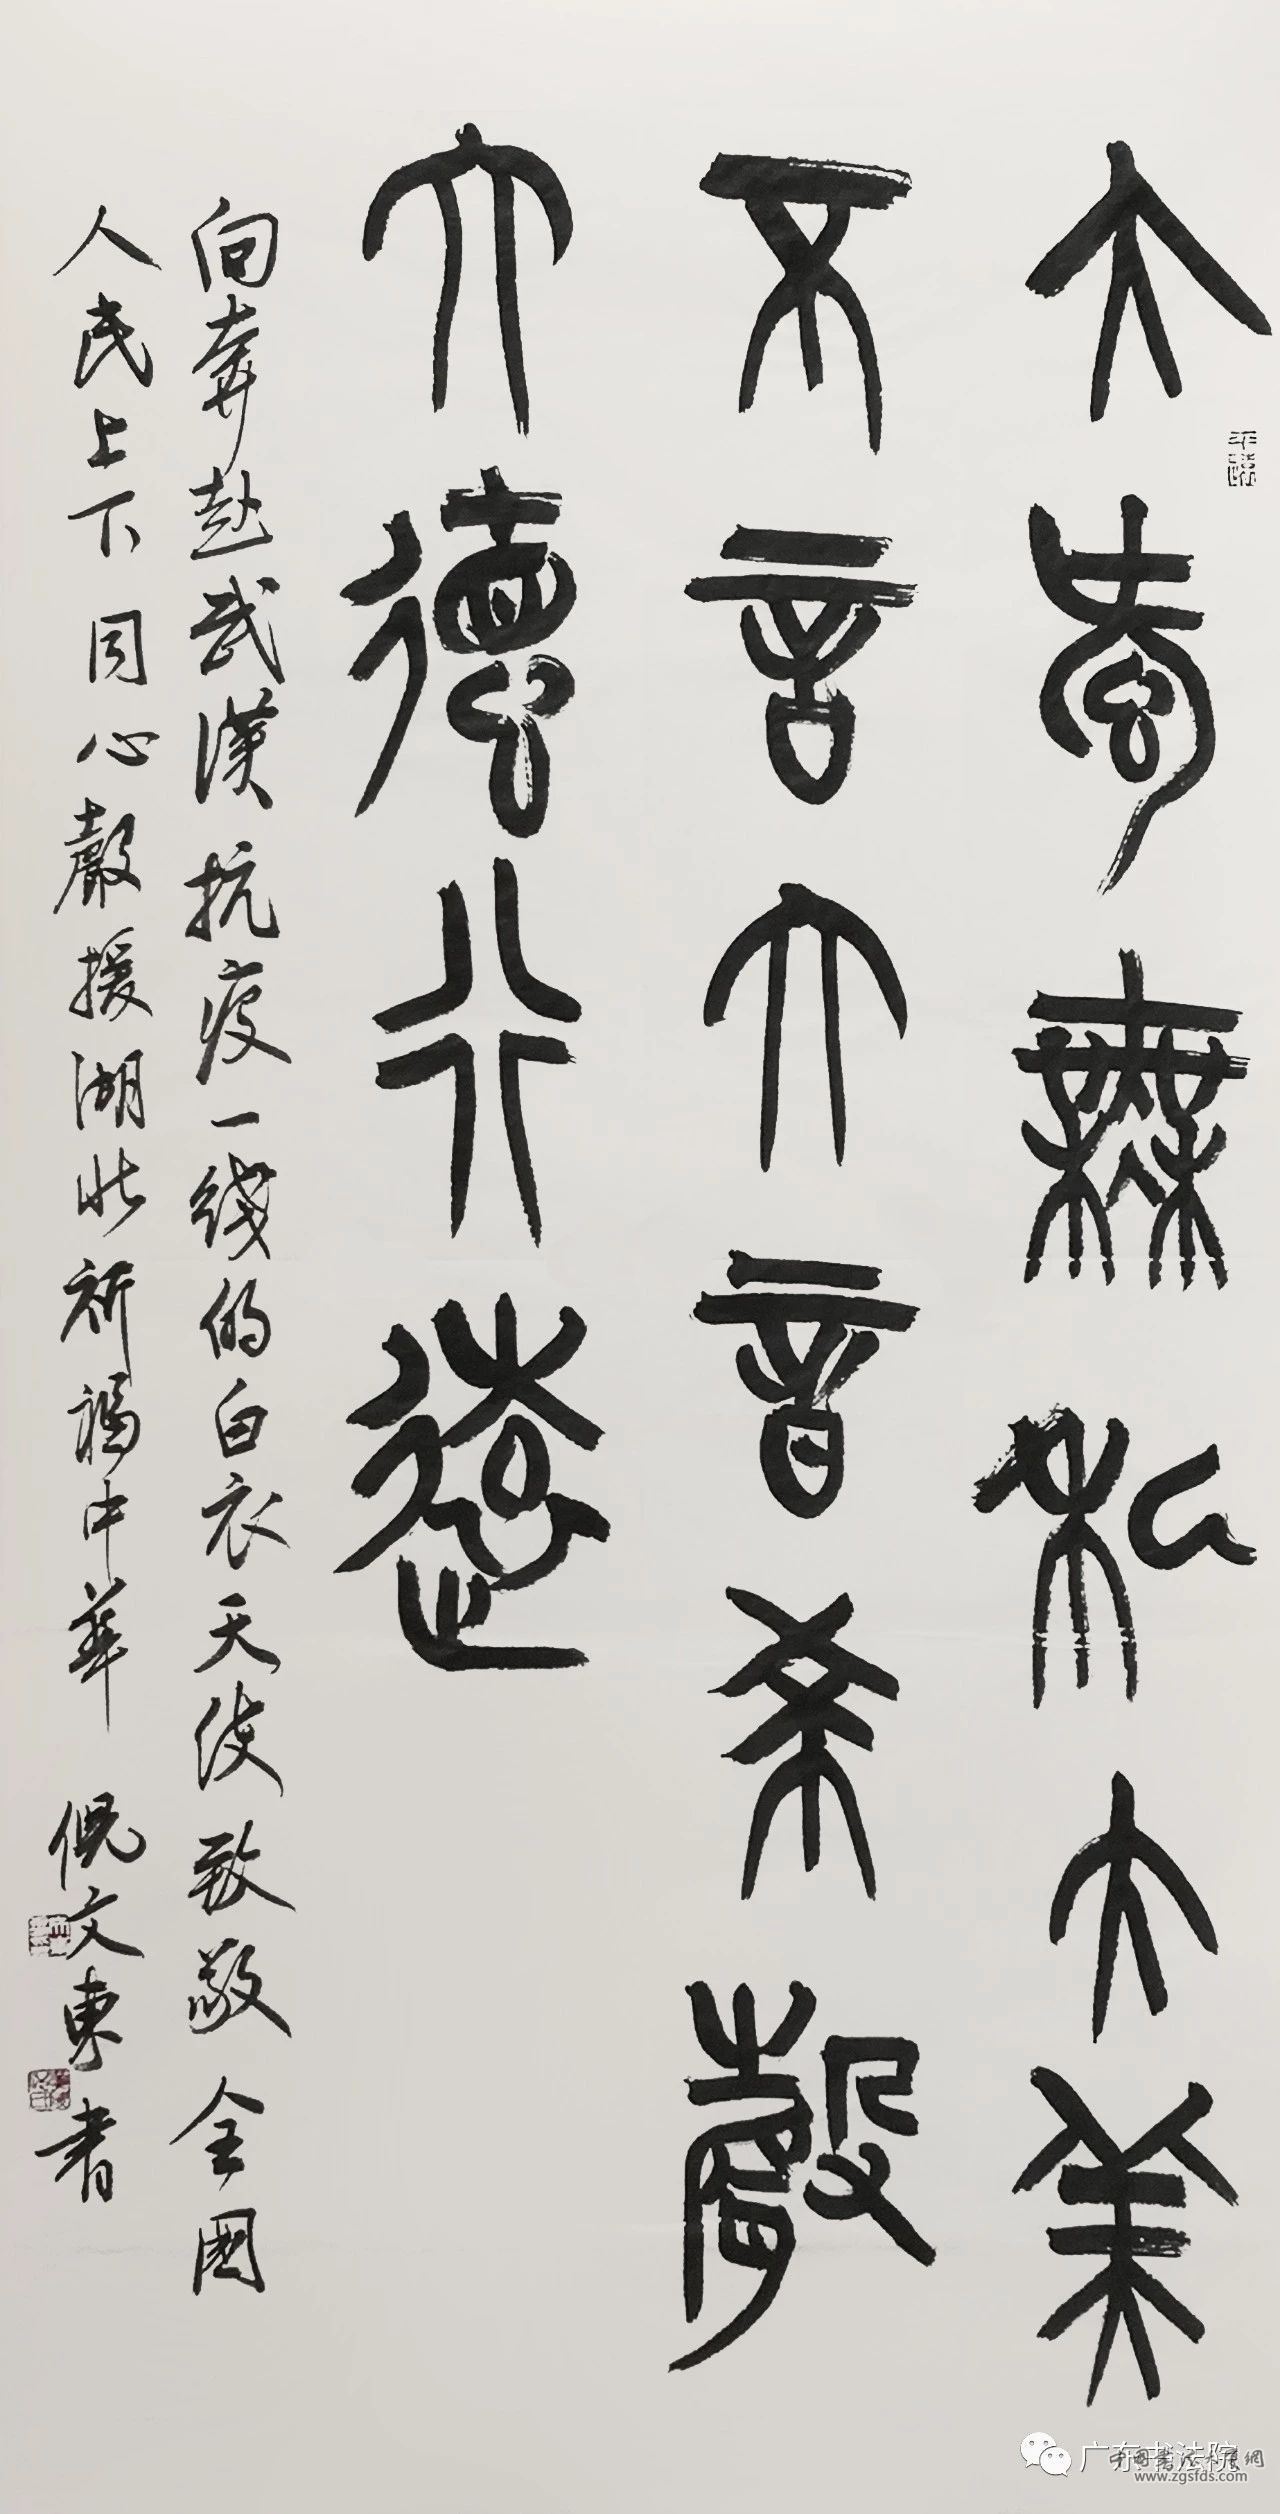 大爱無私大美
不言大音希聲
大德行遠
向奔赴武漢抗疫一线的白衣天使致敬全國
人民上下同心聲援湖北祈福中華 倪文東書
广东书法院
www.zgsfds.com